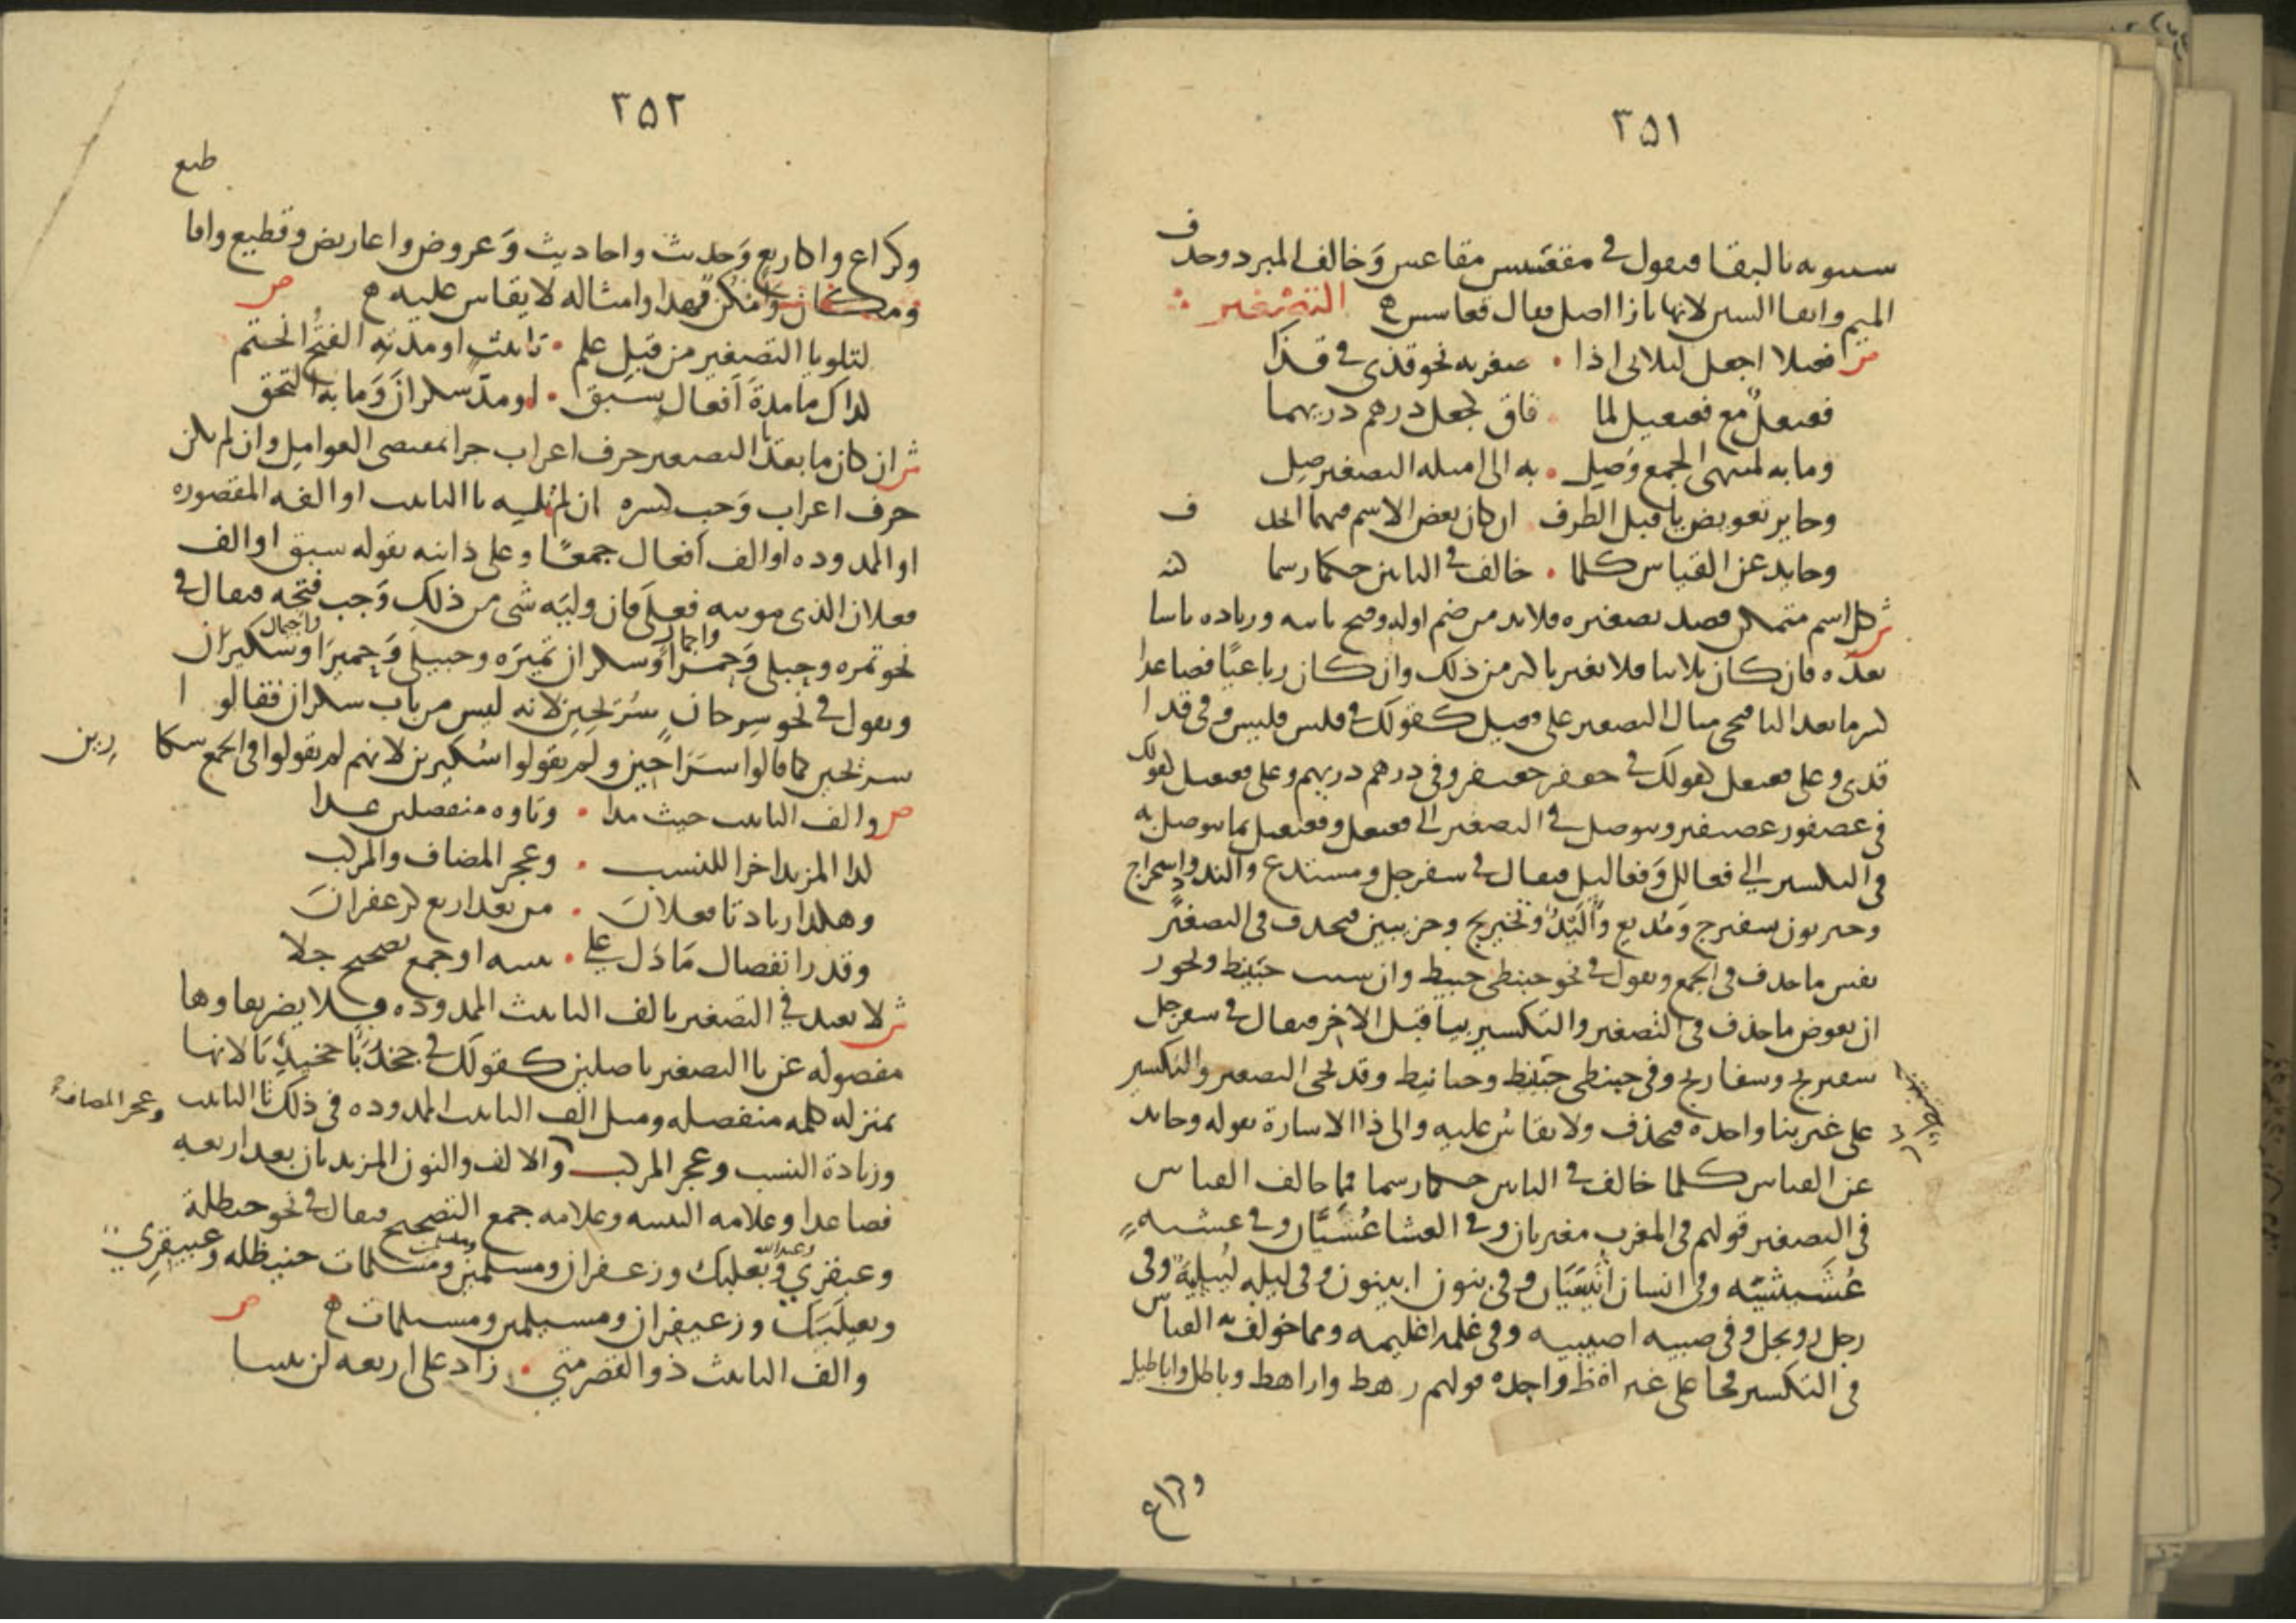 ٣٥١
سيبويه بالبقا فيقول في مقعنسس مقاعس وَخالف المبرد وحذف
الميم وابقا السين لانها بازا اصل فقال قعاسس ه التصغير
ص فعيلا اجعل الثلاثي اذا • صغرته نحو قذى في قذا
فعيعل مع فعيعيل لما • فاق كجعل درهم دريهما
وما به لمنتهى الجمع وُصِل • به الى امثله التصغير صِل
وجايز تعويض يا قبل الطرف • ان كان بعض الاسم فيهما انحذف
وحايد عن القياس كلما • خالف في البابين حكما رسما
ش كل اسم متمكن قصد تصغيره فلابد من ضم اوله وفتح ثانيه وزياده ياسا
بعده فان كان ثلاثيا فلا يغير باكثر من ذلك وان كان رباعيًا فصاعدا
كسر ما بعد اليا فتجي مثال التصغير على فعيل كقولك في فلس فليس وفي قذا
قذى وعلى فعيعل كقولك في جعفر جعيفر وفي درهم دريهم وعلى فعيعيل كقولك
في عصفور عصيفير ويتوصل في التصغير الى فعيعل وفعيعيل بما يتوصل به
في التكسير الى فعالل وَفعاليل فيقال في سفرجل ومستدع والندد واستخراج
وحيزبون سفيرج ومُديع وأُلَيْدّ وتخيريج وحزيبين فتحذف في التصغير
نفس ما حذف في الجمع وتقول في نحو حبنطى حبيط وان شيت حبينط ويجوز
ان يعوض ما حذف في التصغير والتكسير بيا قبل الاخر فيقال في سفرجل
سفيريج وسفاريج وفي حبنطى حبينيط وحبانيط وقد يجي التصغير والتكسير
على غير بنا واحده فيحفظ ولا يقاس عليه والى ذا الاشارة بقوله وحايد
عن القياس كلما خالف في البابين حكما رسما فمما خالف القياس
في التصغير قولهم في المغرب مغيربان وفي العشا عُشَيَّان وفي عشيه
عُشَيشيّه وفي انسان أنَيسيَان وفي بنون ابينون وفي ليله لييليَة وفي
رجل رويجل وفي صبيه اصيبيه وفي غلمه اغيلمه ومما خولف به القياس
في التكسير فجا على غير لفظ واحده قولهم رهط واراهط وباطل واباطيل
وكراع
٣٥٢
وكراع واكاريع وَحديث واحاديث وَعروض واعاريض وقطيع واقاطيع
ومكان وَامكن فهذا وامثاله لا يقاس عليه ه ص
لتلو يا التصغير من قبل علم • تانيث او مدته الفتحُ انحتم
كذاك ما مدةَ اَفعال سبق • او مدّ سكرانَ وَما به التحق
ش ان كان ما بعد يا التصغير حرف اعراب جرا بمقتضى العوامل وان لم يكن
حرف اعراب وَجب كسره ان لم يليه تا التانيث او الفه المقصوره
او الممدوده او الف اَفعال جمعًا وعلى ذا نبه بقوله سبق او الف
فعلان الذي مونثه فعلَى فان وليَه شى من ذلك وَجب فتحِه فيقال في
نحو تمره وحبلى وَحمرا واجمال وَسكران تميرَه وحبيلى وَحميرَا واجيمال وسكيران
وتقول في نحو سِرحان سُرَيحِين لانه ليس من باب سكران فقالوا
سريحين كما قالوا سَرَاحِين ولم يقولوا سُكيرين لانهم لم يقولوا في الجمع سكارين
ص والف التانيث حيث مدا • وتاوه منفصلين عدا
كذا المزيد اخرا للنسب • وعجز المضاف والمركب
وهكذا زيادتا فعلانَ • من بعد اربع كزعفرانَ
وقدر انفصال مَا دَل على • تثنيه او جمع تصحيح جلا
ش لا يعتد في التصغير بالف التانيث الممدوده فلا يضر بقاوها
مفصوله عن يا التصغير باصلين كقولك في جخدبَا جخيدبَا لانها
بمنزله كلمه منفصله ومثل الف التانيث الممدوده في ذلك تا التانيث وعجز المضاف
وزيادة النسب وعجز المركب والالف والنون المزيدتان بعد اربعه
فصاعدا وعلامه التثنيه وعلامه جمع التصحيح فيقال في نحو حنظلة
وعبقري وعبدالله وَبعلبك وزعفران ومسلمين ومسلمات حنيظله وعبيقرِيّ
وبعيلَبَك وزعيفران ومسيلمين ومسيلمات ه ص
والف التانيث ذو القصر متى • زاد على اربعه لن يثبتا